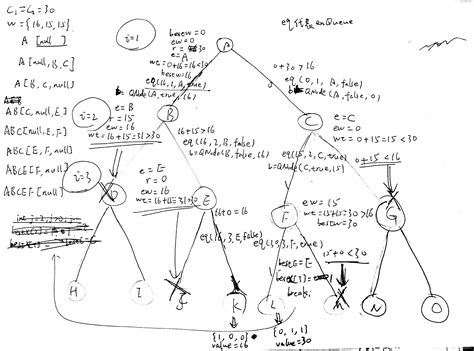 C₁=C₂=30
w={16,15,15}
A [null]
A [B,C]
A [B,C,null]
ABC[null,E]
ABC[null,E,F]
ABCE[F,null]
ABCEF[null]
i=1
bestw=0
ew=0
r=30
e=A
wt=0+16=16<30
bestw=16
eq(16,1,A,true)
b=QNode(A,true,16)
eq代表enQueue
A
0+30>16
eq(0,1,A,false)
b=QNode(A,false,0)
i=2
e=B
r=15
ew=16
wt=16+15=31>30
B
16+15>16
eq(16,2,B,false)
b=QNode(B,false,16)
C
e=C
ew=0
wt=0+15=15<30
eq(15,2,C,true)
b=QNode(C,true,15)
0+15<16
i=3
D
e=E
r=0
ew=16
wt=16+15=31>30
E
16+0=16
eq(16,3,E,false)
F
ew=15
wt=15+15=30>16
bestw=30
G
eq(30,3,F,true)
bestE=E
break;
15+0<30
H
I
J
K
L
M
N
O
{1,0,0}
value=16
{0,1,1}
value=30